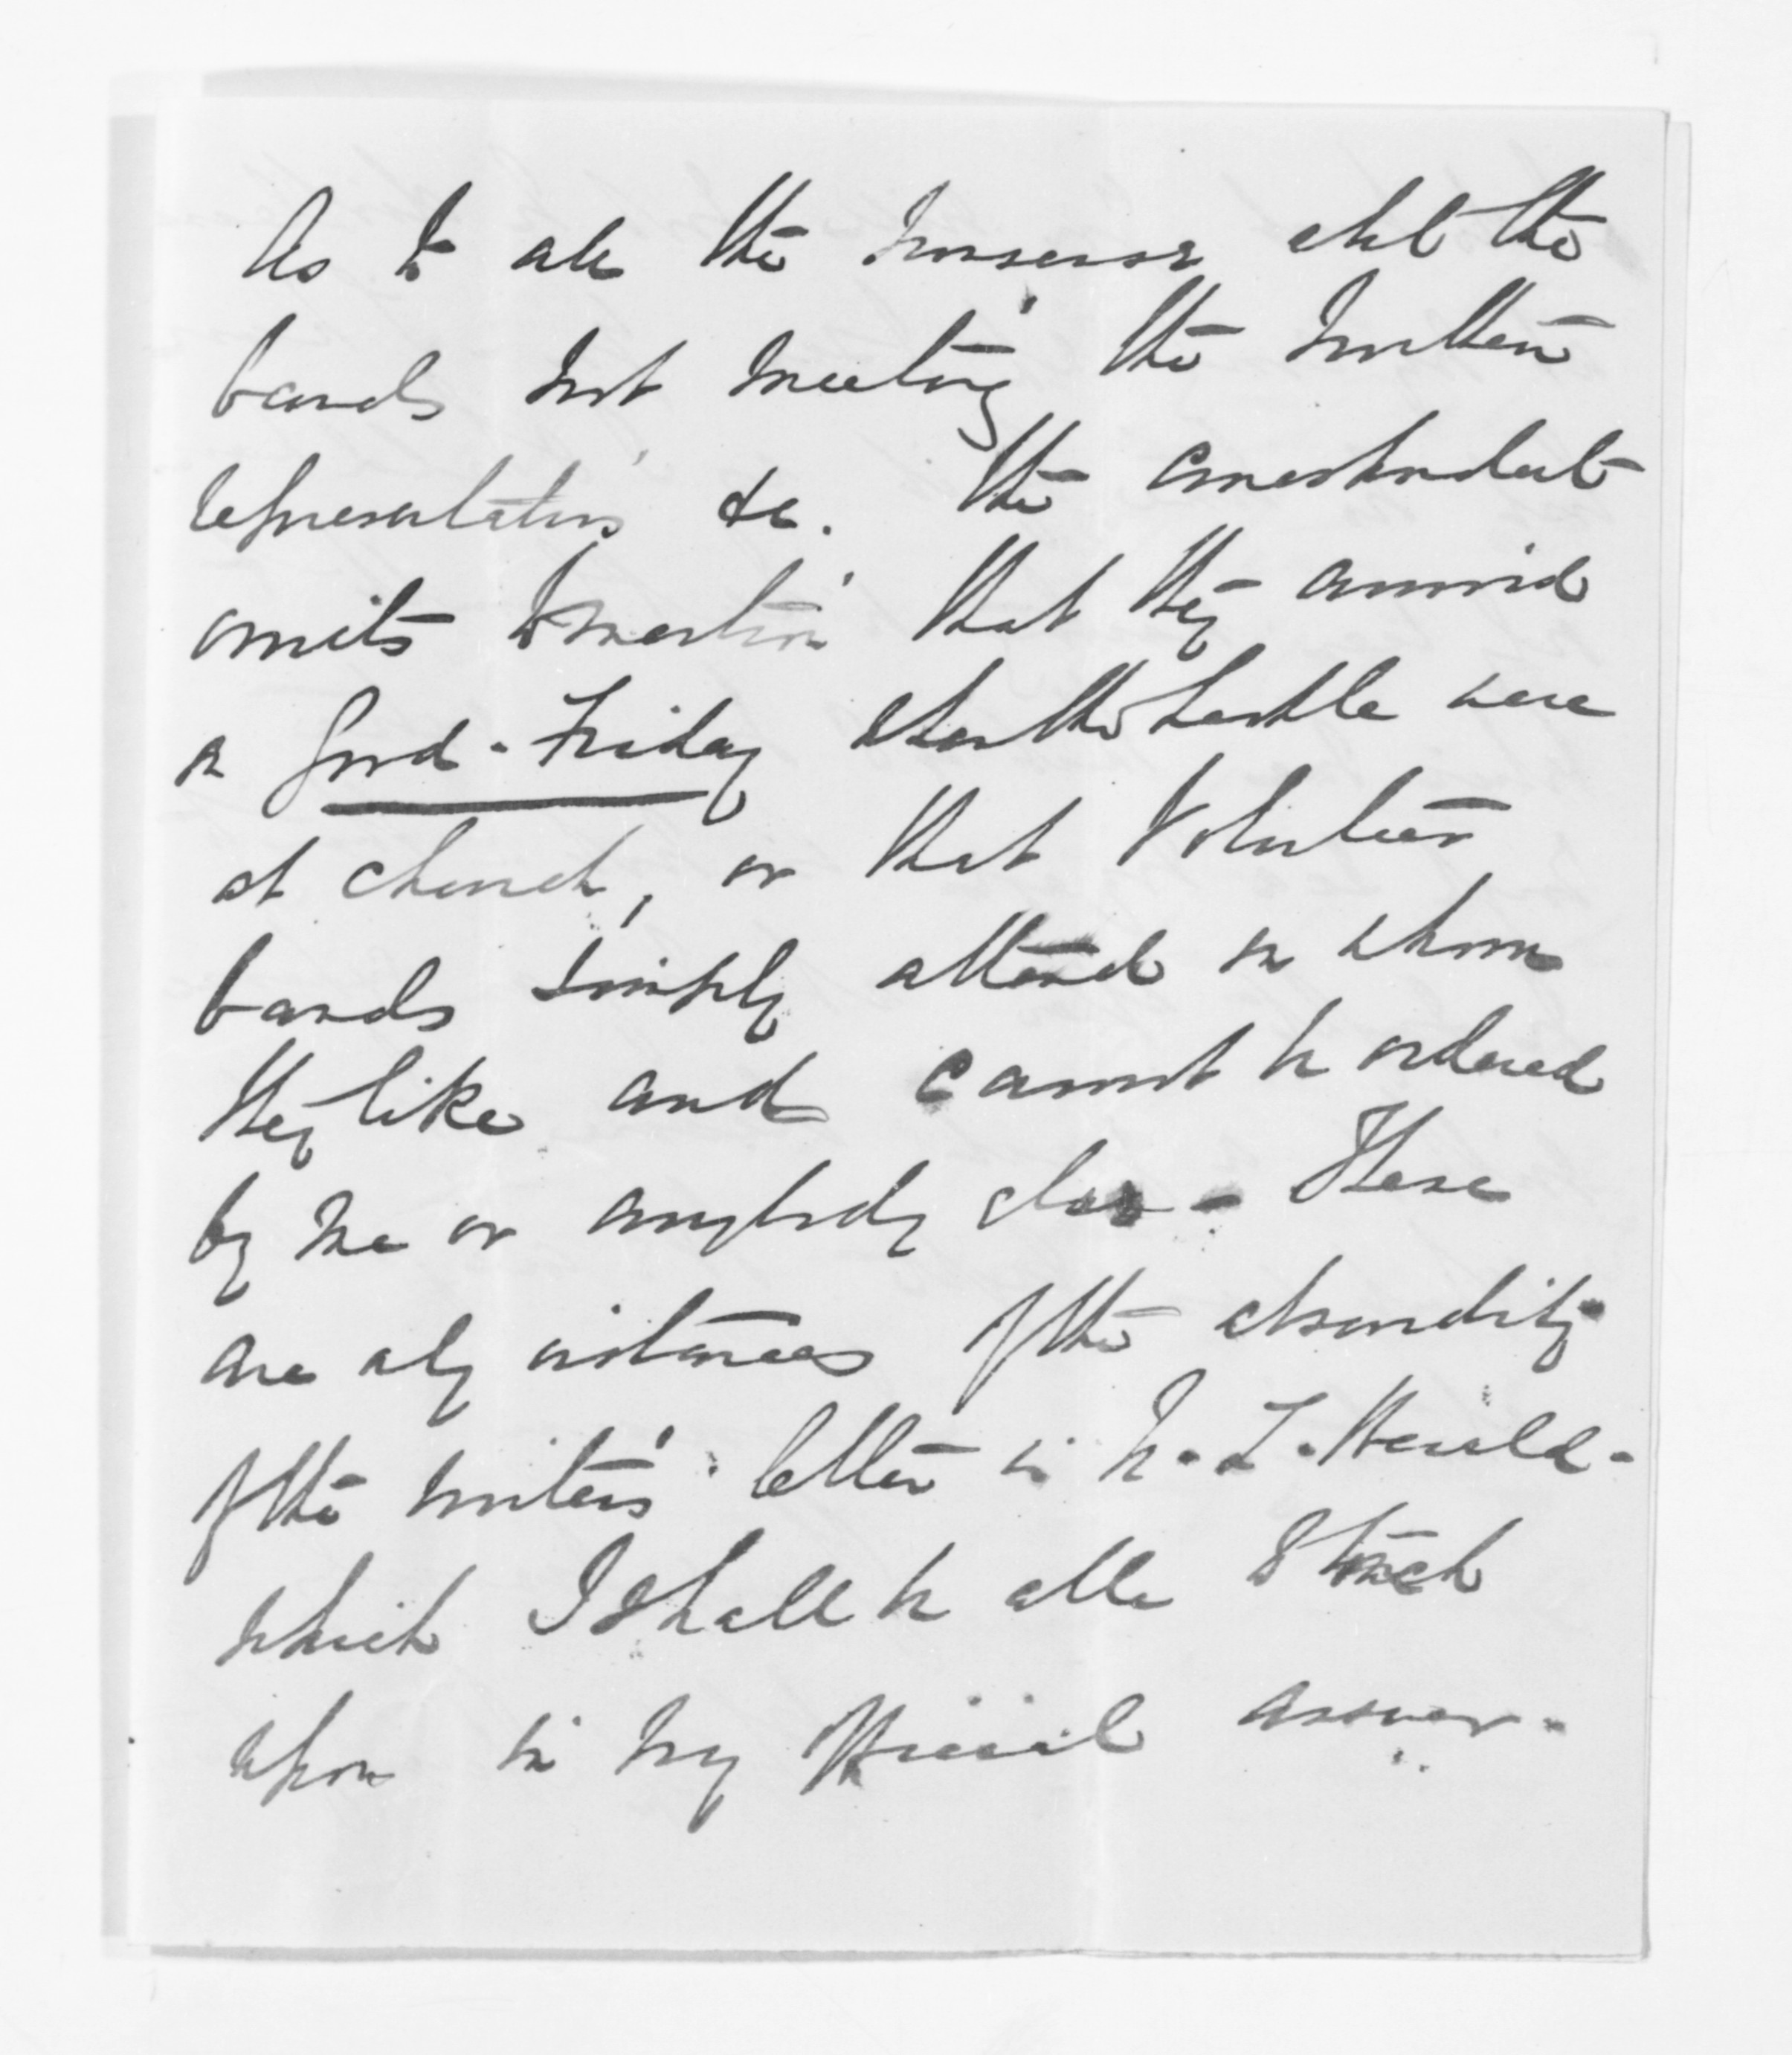 As to all the nonsense abt the
bands not meeting the Northern
representatives &c. The correspondent
omits to mention that they arrived
on Good-Friday when the people were
at church, or that Volunteer
bands simply attend on whom
they like and cannot be ordered
by me or anybody else - These
are only instances of the absurdity
of the writer's letter in N. Z. Herald -
which I shall be able to touch
upon in my official answer -